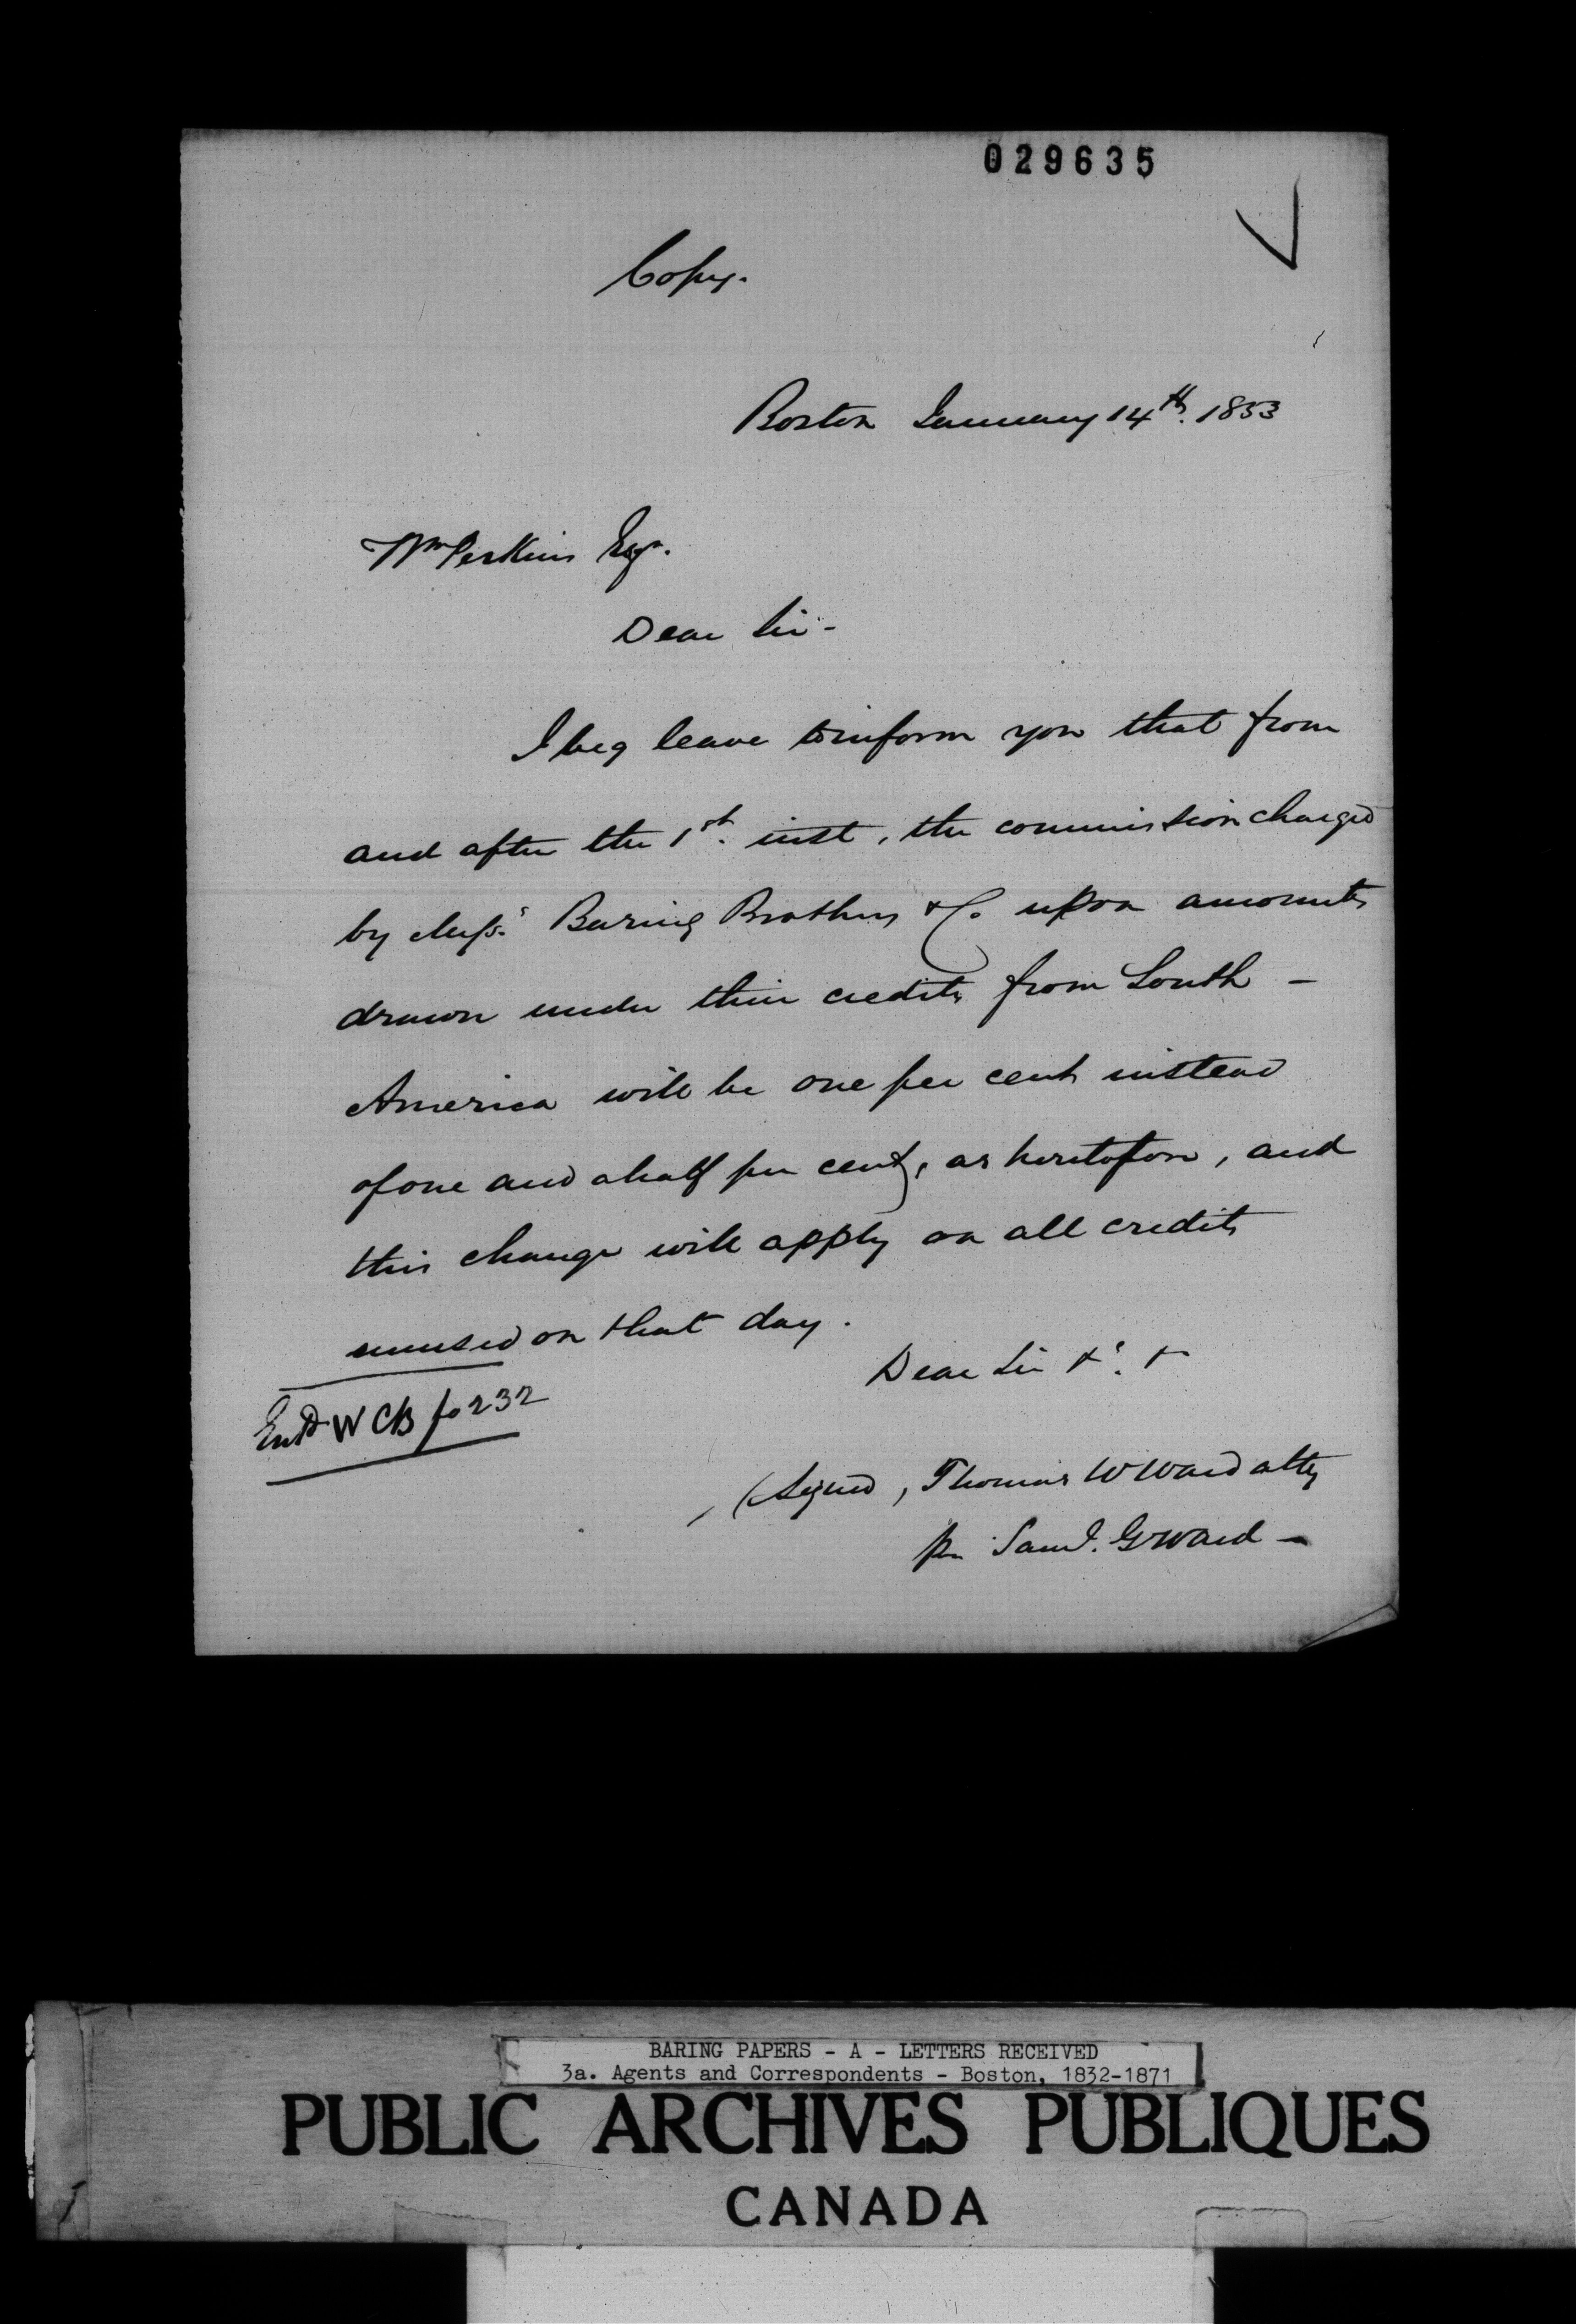 029635
Copy.
Boston January 14th. 1853
Wm Perkins Esqr.
Dear Sir -
I beg leave to inform you that from
and after the 1st. inst, the commission charged
by Messrs. Baring Brothers & Co upon amounts
drawn under their credits from South -
America will be one per cent instead
of one and a half per cent, as heretofore, and
this change will apply on all credits
unused on that day.
Dear Sir &c. &
Entd W CB fo 232
(Signed, Thomas W Ward atty
pr Saml. G Ward -
BARING PAPERS - A - LETTERS RECEIVED
3a. Agents and Correspondents - Boston, 1832-1871
PUBLIC ARCHIVES PUBLIQUES
CANADA